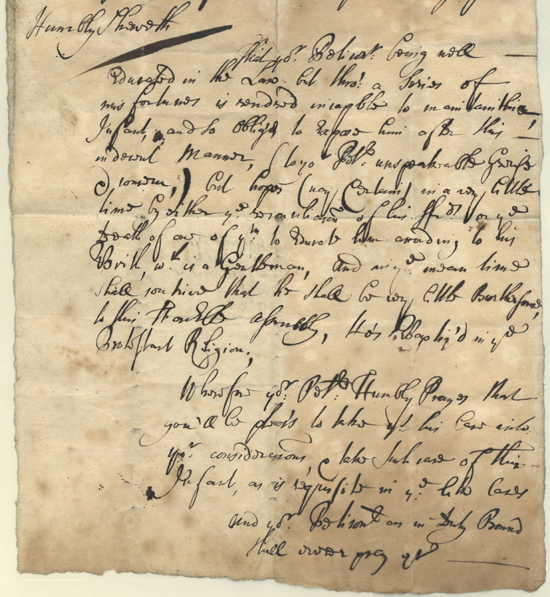 Humbly Sheweth
That yor. Petitionr. being well
Educated in the Law but thro' a Series of
misfortunes is rendred incapble to maintain this
Infant, and so Oblig'd to Expose him after this
indecent Manner, (to yor. Petrs. unspeakable Griefe
& ) but hopes (nay Certain) in a very little
time by either ye. reconciliacon of his ffds. or ye
Death of one of ym. to Educate him according to his
Birth, wch. is a Gentleman, And in ye. mean time
shall contrive that he shall be very little Burthensome
to this Assembly, He's Baptiz'd in ye
Protestant Religion,
Wherefore yor. Petr. Humbly Prayes that
you'll be pleas'd to take his Case into
yor. consideracions, & take such care of this
Infant, as is requisite in ye. like Cases
And yor. Petitionr. as in Duty Bound
Shall ever pray &c